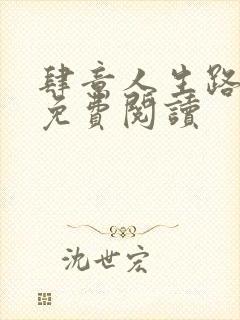 肆意人生路
免費閱讀
沈世宏